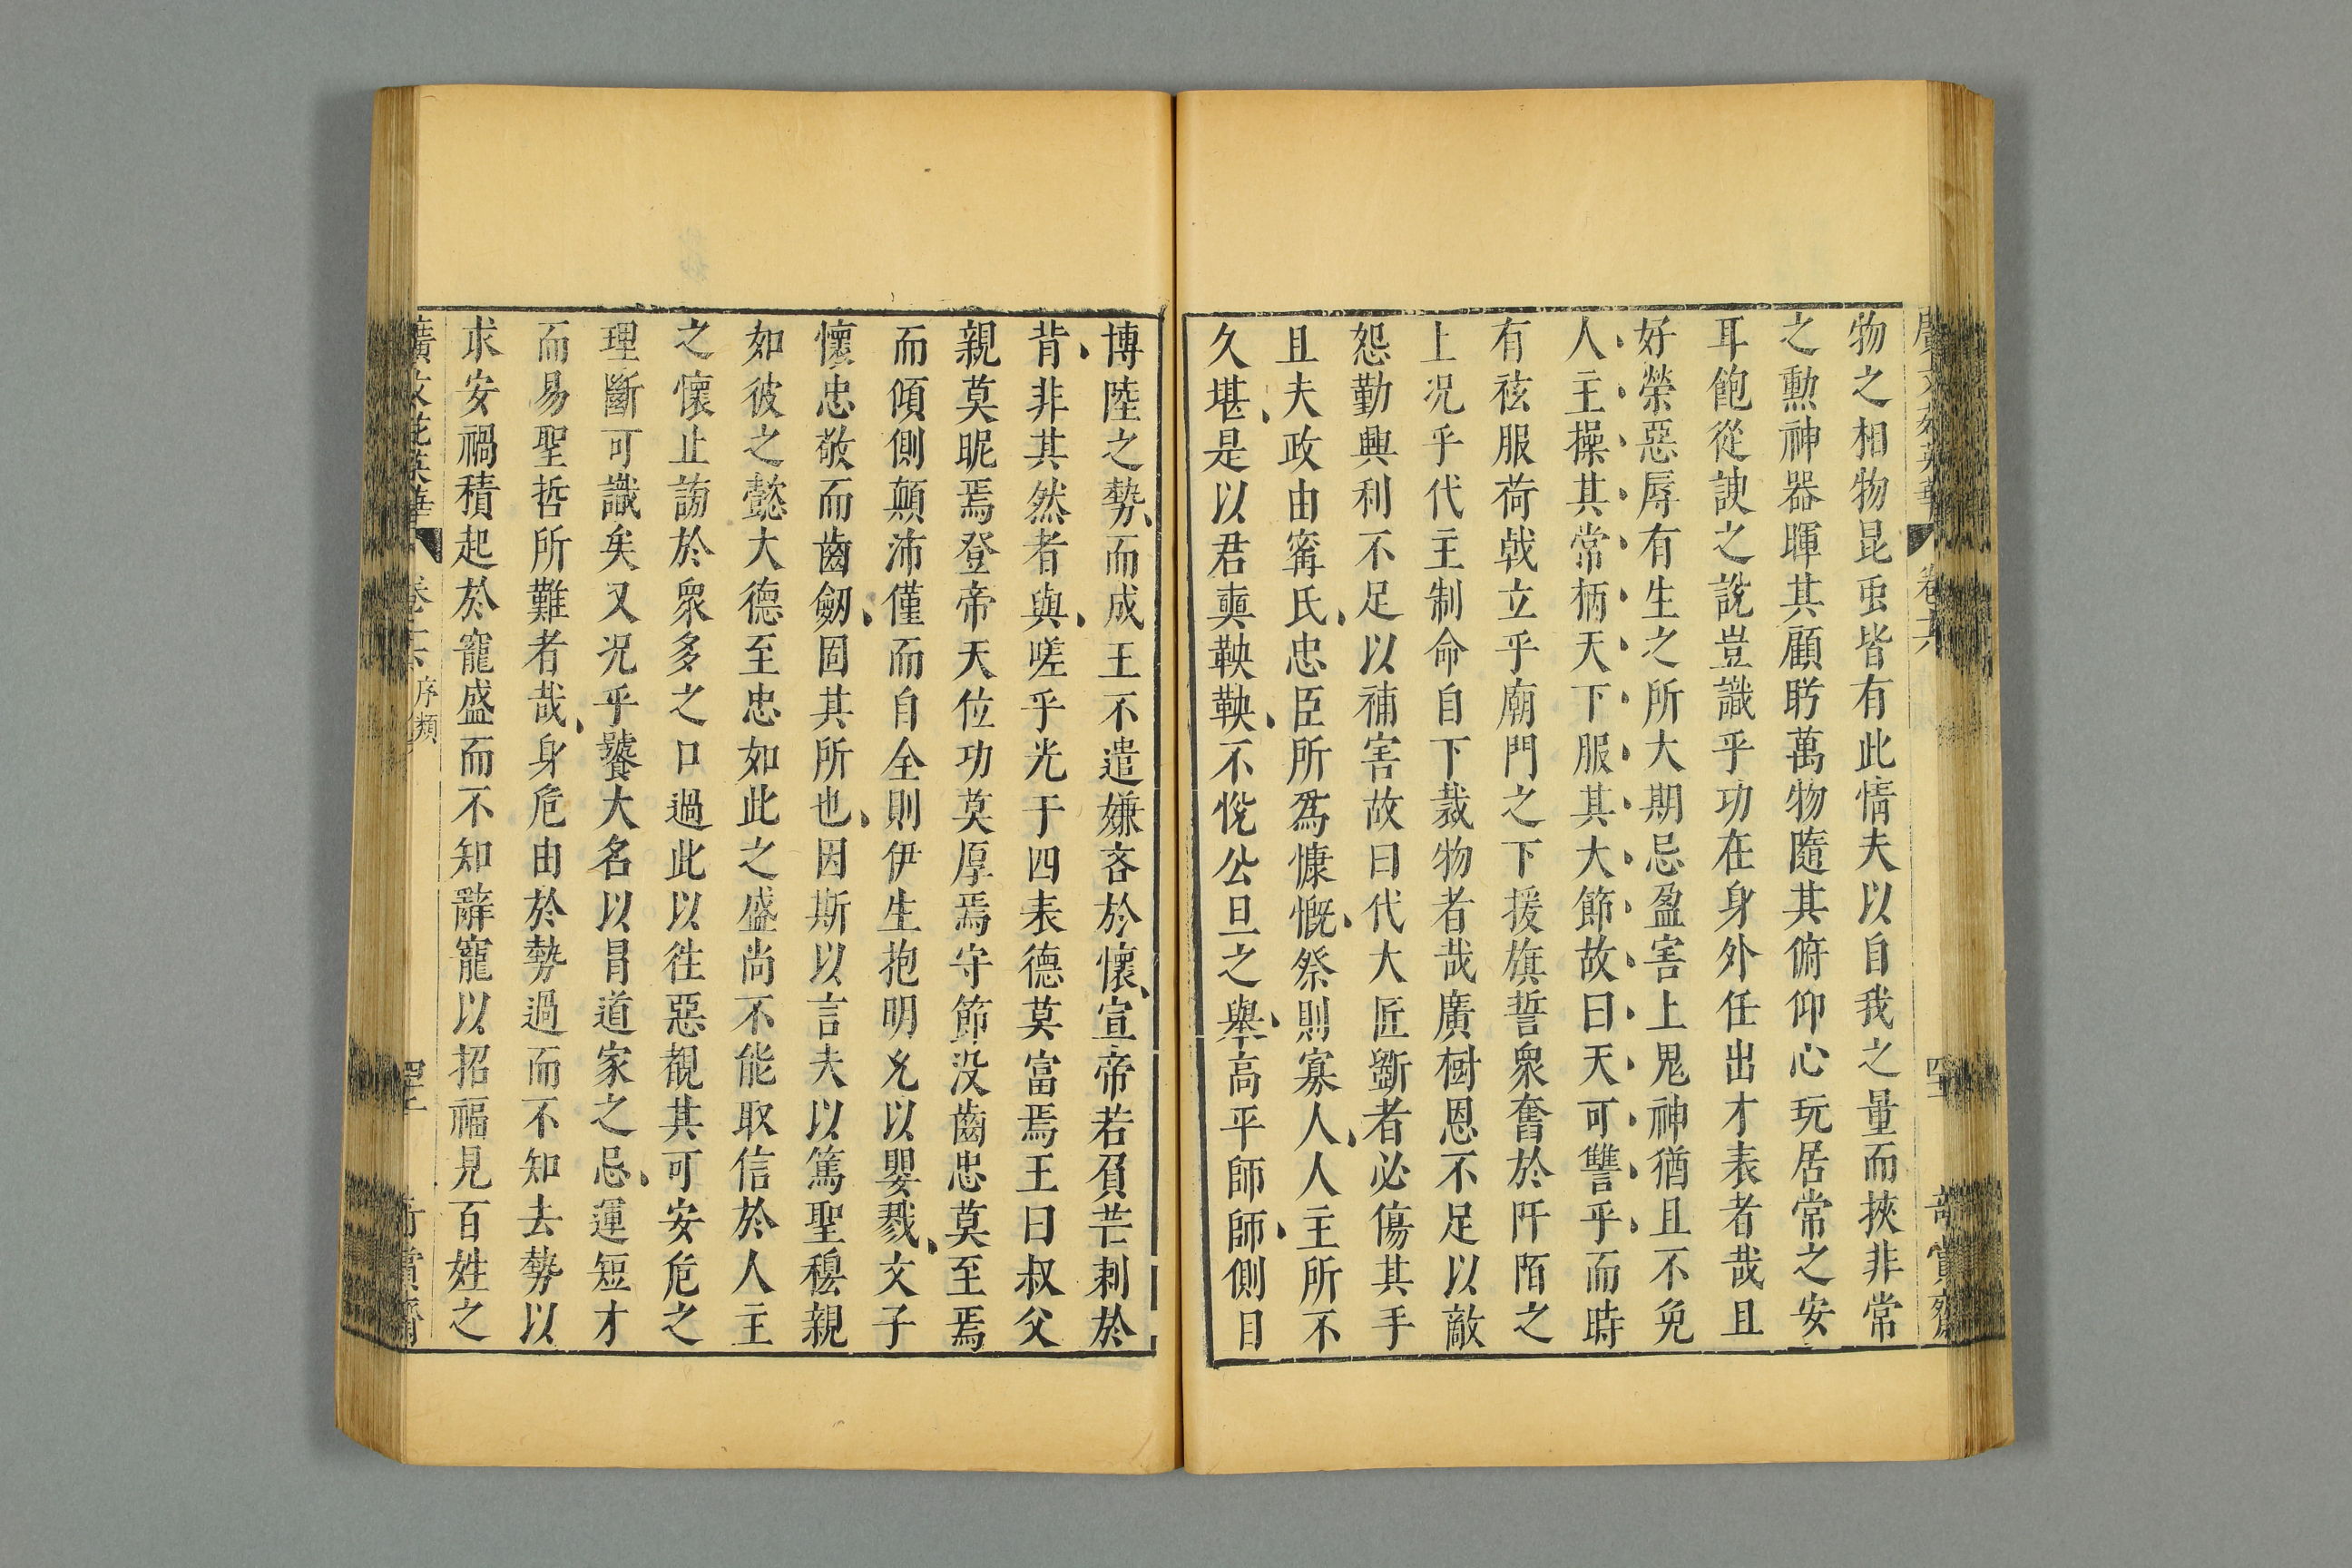 物之相物昆虫皆有此情夫以自我之量而挾非常
之勲神器暉其顧眄萬物隨其俯仰心玩居常之安
耳飽從諛之說豈識乎功在身外任出才表者哉且
好榮惡辱有生之所大期忌盈害上鬼神猶且不免
人主操其常柄天下服其大節故曰天可讐乎而時
有袨服荷戟立乎廟門之下援旗誓衆奮於阡陌之
上况乎代主制命自下裁物者哉廣樹恩不足以敵
怨勤興利不足以補害故曰代大匠斵者必傷其手
且夫政由甯氏忠臣所爲慷慨祭則寡人人主所不
久堪是以君奭鞅鞅不悅公旦之舉高平師師側目
博陸之勢而成王不遣嫌吝於懷宣帝若負芒刺於
背非其然者與嗟乎光于四表德莫富焉王曰叔父
親莫昵焉登帝天位功莫厚焉守節没齒忠莫至焉
而傾側顛沛僅而自全則伊生抱明允以嬰戮文子
懷忠敬而齒劒固其所也因斯以言夫以篤聖穆親
如彼之懿大德至忠如此之盛尚不能取信於人主
之懷止謗於衆多之口過此以徃惡覩其可安危之
理斷可識矣又况乎饕大名以冒道家之忌運短才
而易聖哲所難者哉身危由於勢過而不知去勢以
求安禍積起於寵盛而不知辭寵以招福見百姓之
廣文苑英華 卷十六 序類